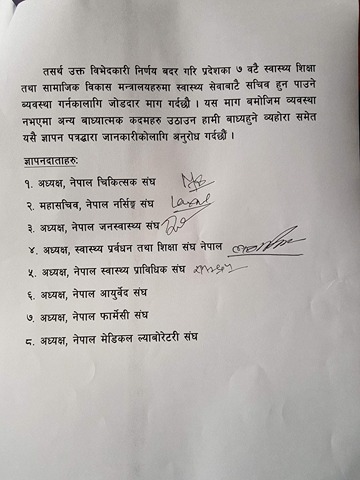 तसर्थ उक्त विभेदकारी निर्णय बदर गरि प्रदेशका ७ वटै स्वास्थ्य शिक्षा
तथा सामाजिक विकास मन्त्रालयहरुमा स्वास्थ्य सेवाबाटै सचिव हुन पाउने
ब्यवस्था गर्नकालागि जोडदार माग गर्दछौं । यस माग बमोजिम ब्यवस्था
नभएमा अन्य बाध्यात्मक कदमहरु उठाउन हामी बाध्यहुने ब्यहोरा समेत
यसै ज्ञापन पत्रद्धारा जानकारीकोलागि अनुरोध गर्दछौं ।
ज्ञापनदाताहरुः
१. अध्यक्ष, नेपाल चिकित्सक संघ
२. महासचिव, नेपाल नर्सिङ्ग संघ
३. अध्यक्ष, नेपाल जनस्वास्थ्य संघ
४. अध्यक्ष, स्वास्थ्य प्रर्वधन तथा शिक्षा संघ नेपाल
५. अध्यक्ष, नेपाल स्वास्थ्य प्राविधिक संघ
६. अध्यक्ष, नेपाल आयुर्वेद संघ
७. अध्यक्ष, नेपाल फार्मेसी संघ
८. अध्यक्ष, नेपाल मेडिकल ल्याबोरेटरी संघ